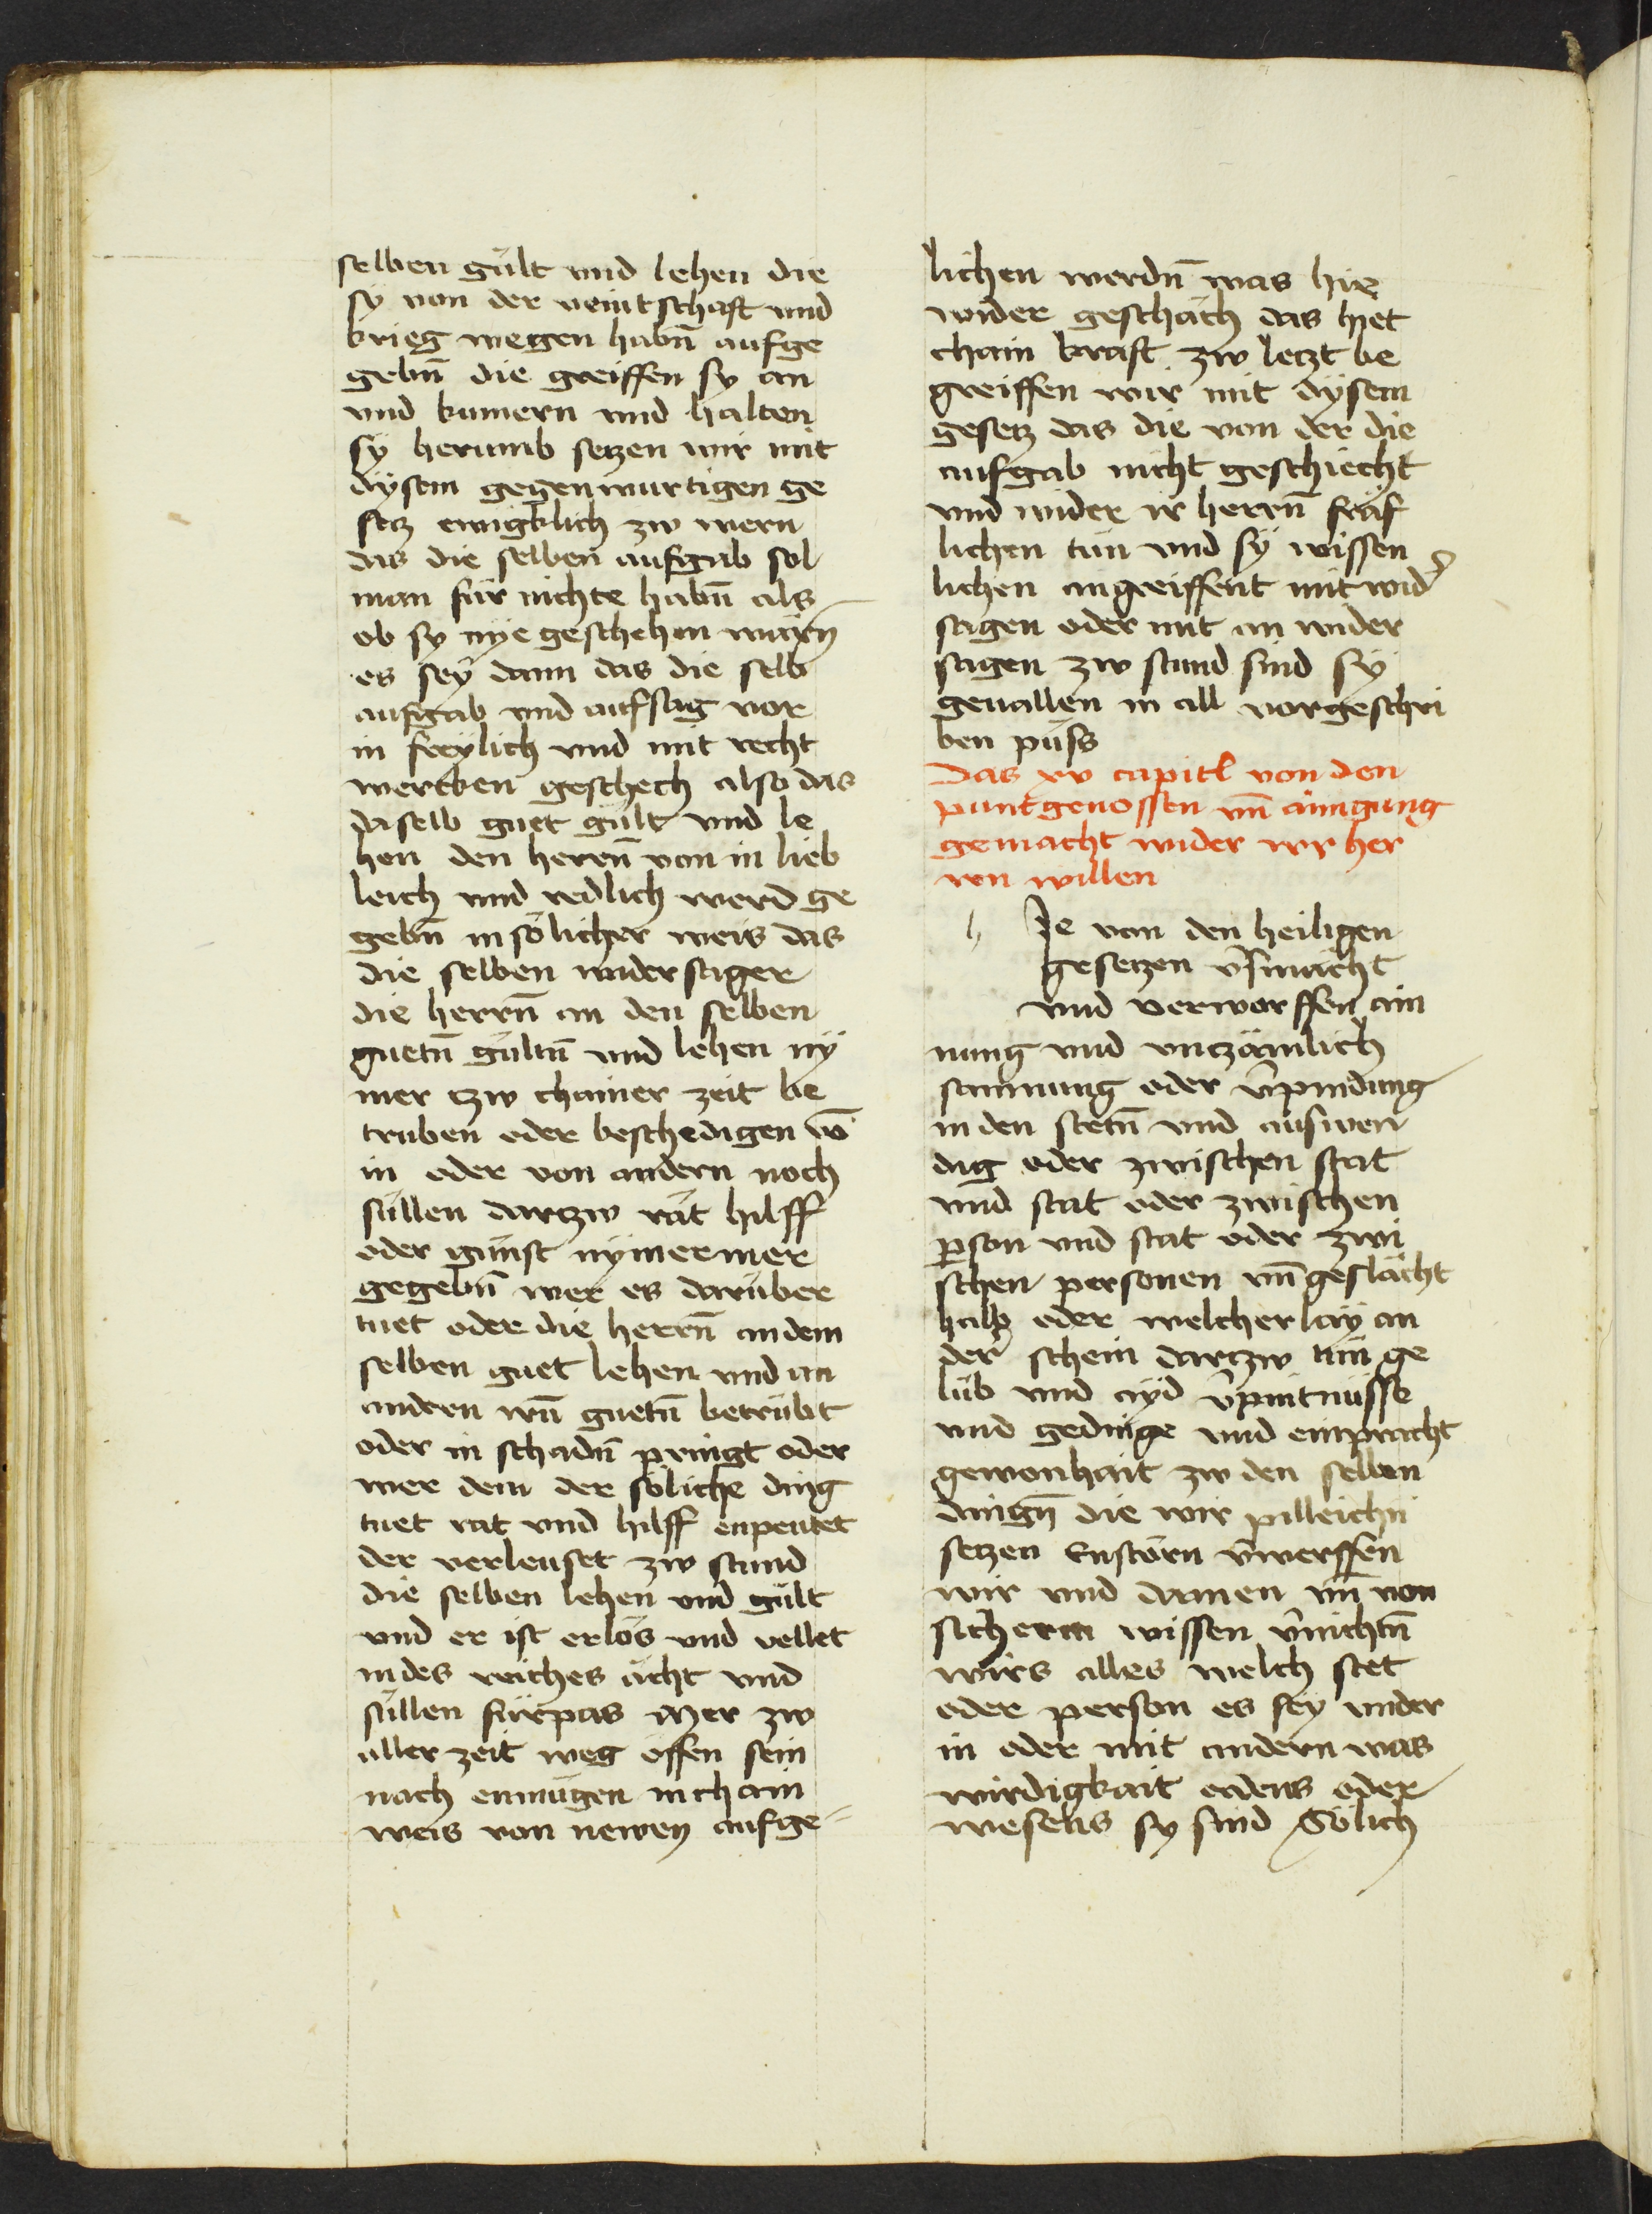 selben gült vnd lehen die
sÿ von der veintschaft vnd
krieg wegen habn̄ aufge
gebn̄ die greiffen sy an
vnd kumern vnd halten
sÿ herumb setzen wir mit
dÿsem gegenwurtigen ge
setz ewigklich zw wern
das die selben aufgab sol
man für nichte habn̄ als
ob sy nÿe geschehen warn̄
es seÿ dann das die selb
aufgab vnd aufsag vor
in freÿlich vnd mit recht
wercken geschech also das
daselb guet gült vnd le
hen den herrn̄ von in lieb
leich vnd redlich werd ge
gebn̄ in sölicher weis das
die selben widersager
die herrn̄ an den selben
guetn̄ gültn̄ vnd lehen nÿ
mer tzw chainer zeit be
truben oder beschedigen vō
in oder von andern noch
süllen dartzw rät hilff
oder günst nÿmermer
gegebn̄ wer es darüber
tuet oder die herrn̄ an dem
selben guet lehen vnd an
andern irn̄ guetn̄ betrübt
oder in schadn̄ pringt oder
wer dem der söliche ding
tuet rat vnd hilff enpeutet
der verleuset zw stund
die selben lehen vnd gült
vnd er ist erlös vnd vellet
in des reiches ächt vnd
süllen fürpas mer zw
aller zeit weg offen sein
nach enmügen in chain
weis von newen aufge
lichen werdn̄ was hie
wider geschäch das hiet
chain kraft zw letzt be
greiffen wir mit dÿsem
gesetz das die von der die
aufgab nicht geschiecht
vnd wider ir herrn̄ fräf
lichen tün vnd sÿ wissen
lichen angreiffent mit wid̄
sagen oder mit an wider
sagen zw stund sind sÿ
geuallen in all vorgeschri
ben püss
Das xv capitl von den
puntgenossen vn̄ ainigung
gemacht wider irr her
ren willen
Ie von den heiligen
gesetzen v̄smächt
vnd verworffen ain
nung vnd vnzämlich
samnung oder v̄pindung
in den stetn̄ vnd auswen
dig oder zwischen stat
vnd stat oder zwischen
person vnd stat oder zwi
schen personen vn̄ geslächt
halb oder welcherlaÿ an
der schein dartzw tün ge
lüb vnd aÿd v̄pintnüsse
vnd gedinge vnd einpracht
gewonhait zw den selben
dingn̄ die wir pilleichn
setzen Enstörn v̄werffen
wir vnd damen vn̄ von
sicherm wissen v̄nichtn̄
wirs alles welch stet
oder person es seÿ vnder
in oder mit andern was
wirdigkait ordens oder
wesens sy sind Sölich